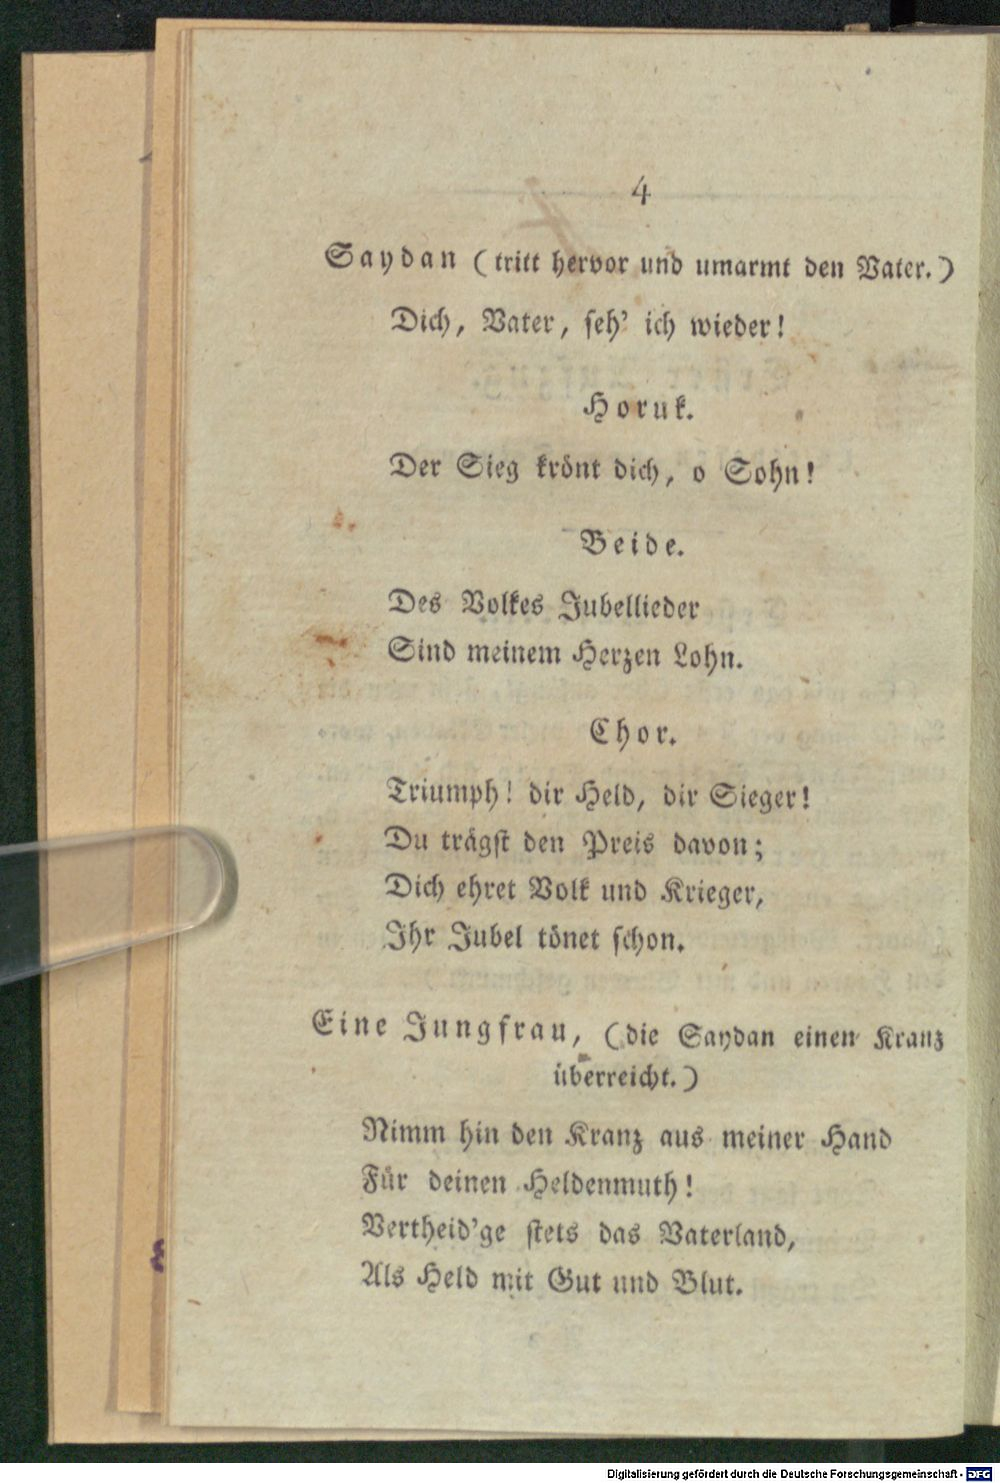 4
Saydan (tritt hervor und umarmt den Vater.)
Dich, Vater, seh' ich wieder!
Horuk.
Der Sieg krönt dich, o Sohn!
Beide.
Des Volkes Jubellieder
Sind meinem Herzen Lohn.
Chor.
Triumph! dir Held, dir Sieger!
Du trägst den Preis davon;
Dich ehret Volk und Krieger,
Ihr Jubel tönet schon.
Eine Jungfrau, (die Saydan einen Kranz
überreicht.)
Nimm hin den Kranz aus meiner Hand
Für deinen Heldenmuth!
Vertheid'ge stets das Vaterland,
Als Held mit Gut und Blut.
Digitalisierung gefördert durch die Deutsche Forschungsgemeinschaft - DFG